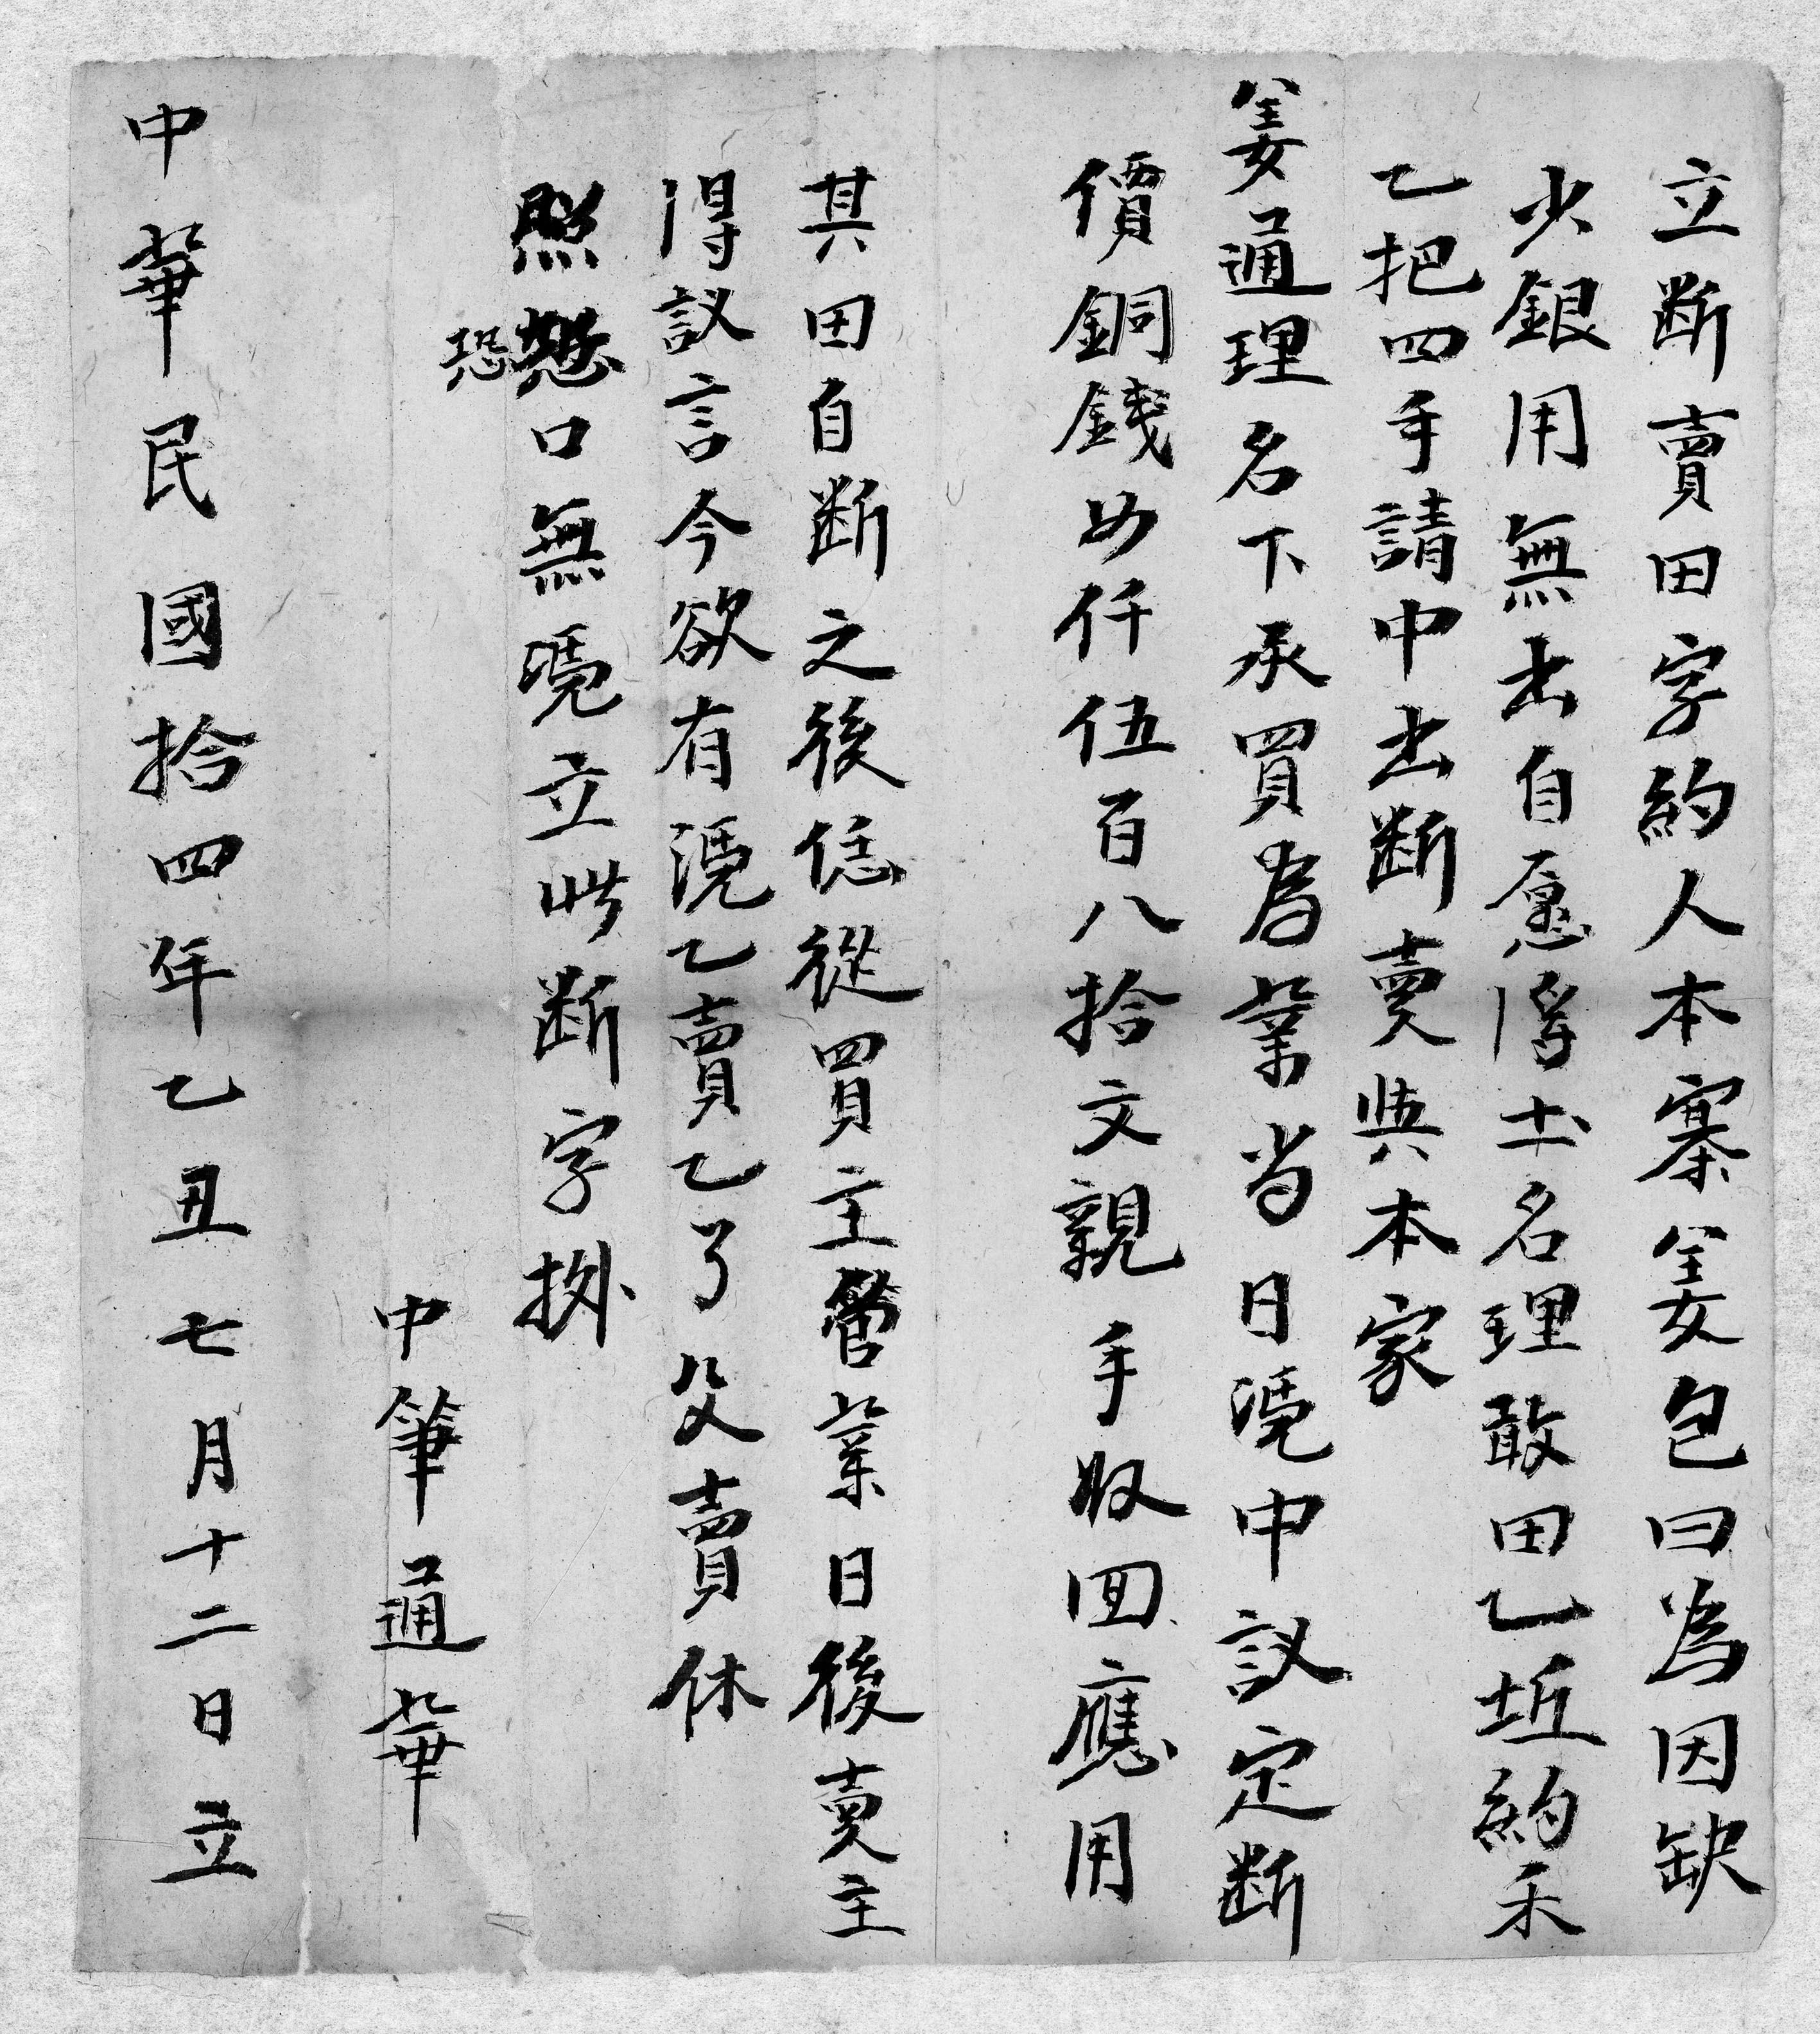 立断賣田字約人本寨姜包曰為因缺
少銀用無出自愿將土名理敢田乙坵約禾
乙把四手請中出断賣與本家
姜通理名下承買為業当日凴中議定断
價銅錢仿仟伍百八拾文親手收回應用
其田自断之後恁從買主管業日後賣主
得議言今欲有凴乙賣乙了父賣休
照恐口無凴立此断字
恐
中筆通華
中華民國拾四年乙丑七月十二日立